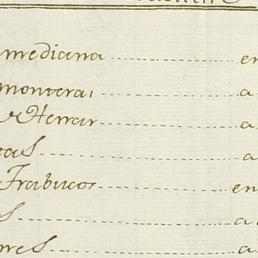 mediana ---- en
monterai ---- a
Herrar ---- a
tas ---- a
Trabucos ---- en
s ---- a
rres ---- a